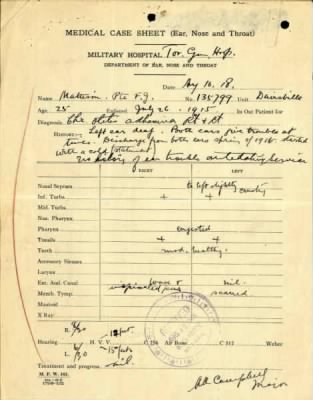 MEDICAL CASE SHEET (Ear, Nose and Throat)
MILITARY HOSPITAL Tor. Gen. Hosp.
DEPARTMENT OF EAR, NOSE AND THROAT
Date 16. 18.
Name Matteson Pte F.J. No. 135799 Unit
Age 25 Enlisted July 26 1915 In Out Patient for
Diagnosis Otitis Rt & Lt
History:- Left ear deaf. Both ears give trouble at
times. Discharge from both ears spring of 1916 started
with a cold (statement
No history of ear trouble antedating service
RIGHT LEFT
Nasal Septum to left slightly
Inf. Turbs. + +
Mid. Turbs.
Nas. Pharynx
Pharynx congested
Tonsils + +
Teeth mod. healthy.
Accessory Sinuses
Larynx
Ext. Aud. Canal nil.
Memb. Tymp. scarred
Mastoid
X Ray
R.
Hearing H. V. V. C 256 Air Bone C 512 Weber
L.
Treatment and progress. nil.
M. F. W. 102.
Campbell
Major